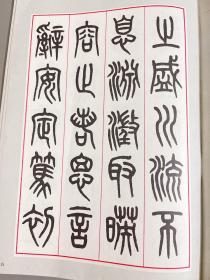 之盛川流不
息淵澂取暎
容止若思言
辭安定篤初